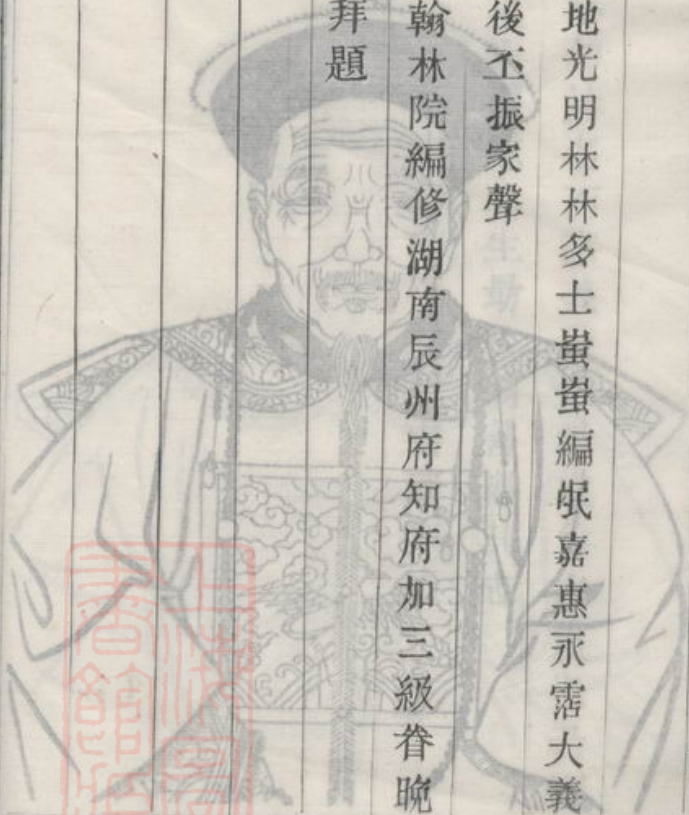 地光明林林多士蚩蚩編氓嘉惠永霑大義
後丕振家聲
翰林院編修湖南辰州府知府加三級眷晚
拜題